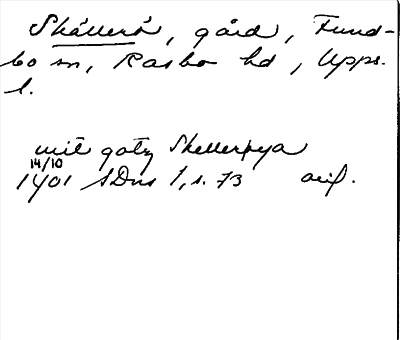 Skällerö, gård, Fund-
bo sn, Rasbo hd, Upps.
l.
mit gotz Skellerøya
14/10
1401 SDns 1, s. 73 orig.